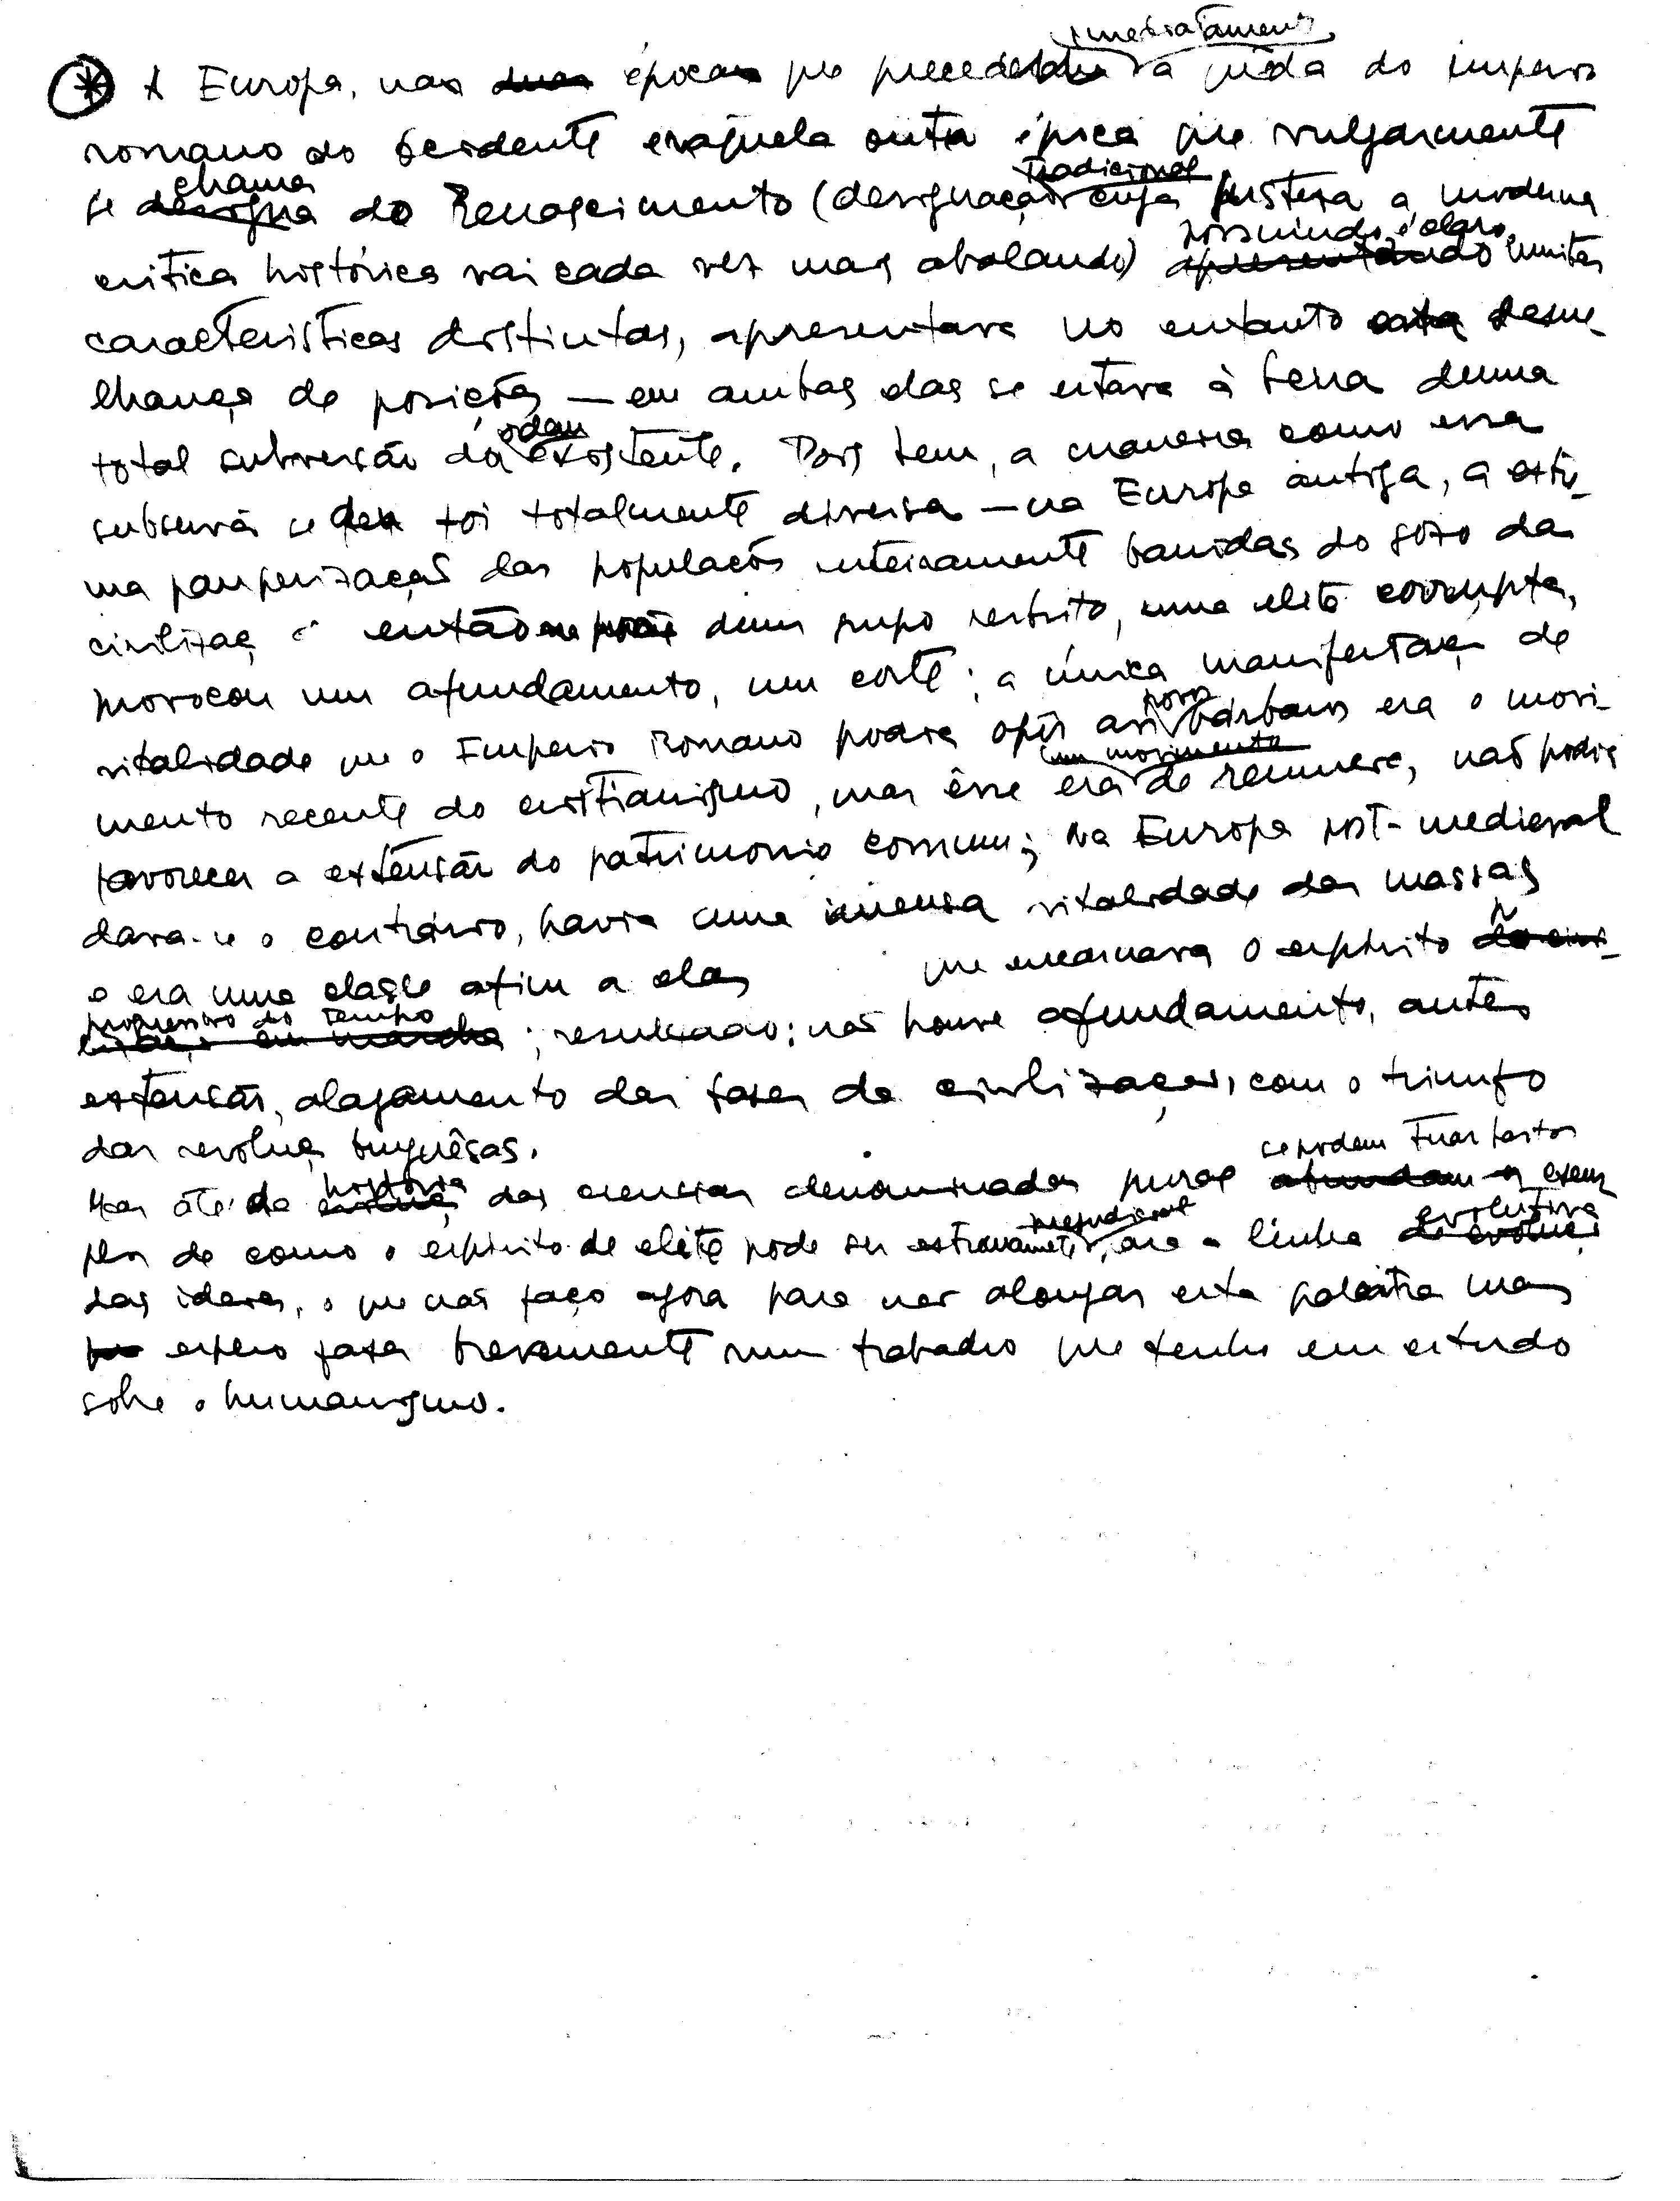 imediatamente
* A Europa, nas duas épocas que precederam a queda do imperio
romano do ocidente e naquela outra época que vulgarmente
chama tradicional
se designa do Renascimento (designação cuja justeza a moderna
possuindo, é claro,
critica histórica vai cada vez mais abalando) apresentando muitas
caracteristicas distintas, apresentava no entanto esta seme-
lhança de posições — em ambas elas se estava à beira duma
ordem
total subversão da existente. Pois bem, a maneira como essa
subversão se deu foi totalmente diversa — na Europa antiga, a extre-
ma pauperização das populações inteiramente banidas do gozo da
civilização então dum grupo restrito, uma elite corrupta,
provocou um afundamento, um corte; a única manifestação de
povos
vitalidade que o Imperio Romano podia opôr aos bárbaros era o movi-
um movimento
mento recente do cristianismo, mas êsse era de renuncia, não podia
favorecer a extensão do patrimonio comum; na Europa post-medieval
dava-se o contrário, havia uma imensa vitalidade das massas
e era uma classe afim a elas que encarnava o espirito
progressivo do tempo
em marcha; resultado: não houve afundamento, antes
extensão, alargamento das bases da civilização, com o triunfo
das revoluções burguêsas.
história se podem tirar bastos
Mas até da evolução das ciencias denominadas puras abundam os exem
prejudicial evolutiva
plos de como o espirito de elite pode ser extremamente para a linha de evolução
das ideias, o que não faço agora para não alongar esta palestra mas
que espero fazer brevemente num trabalho que tenho em estudo
sobre o humanismo.